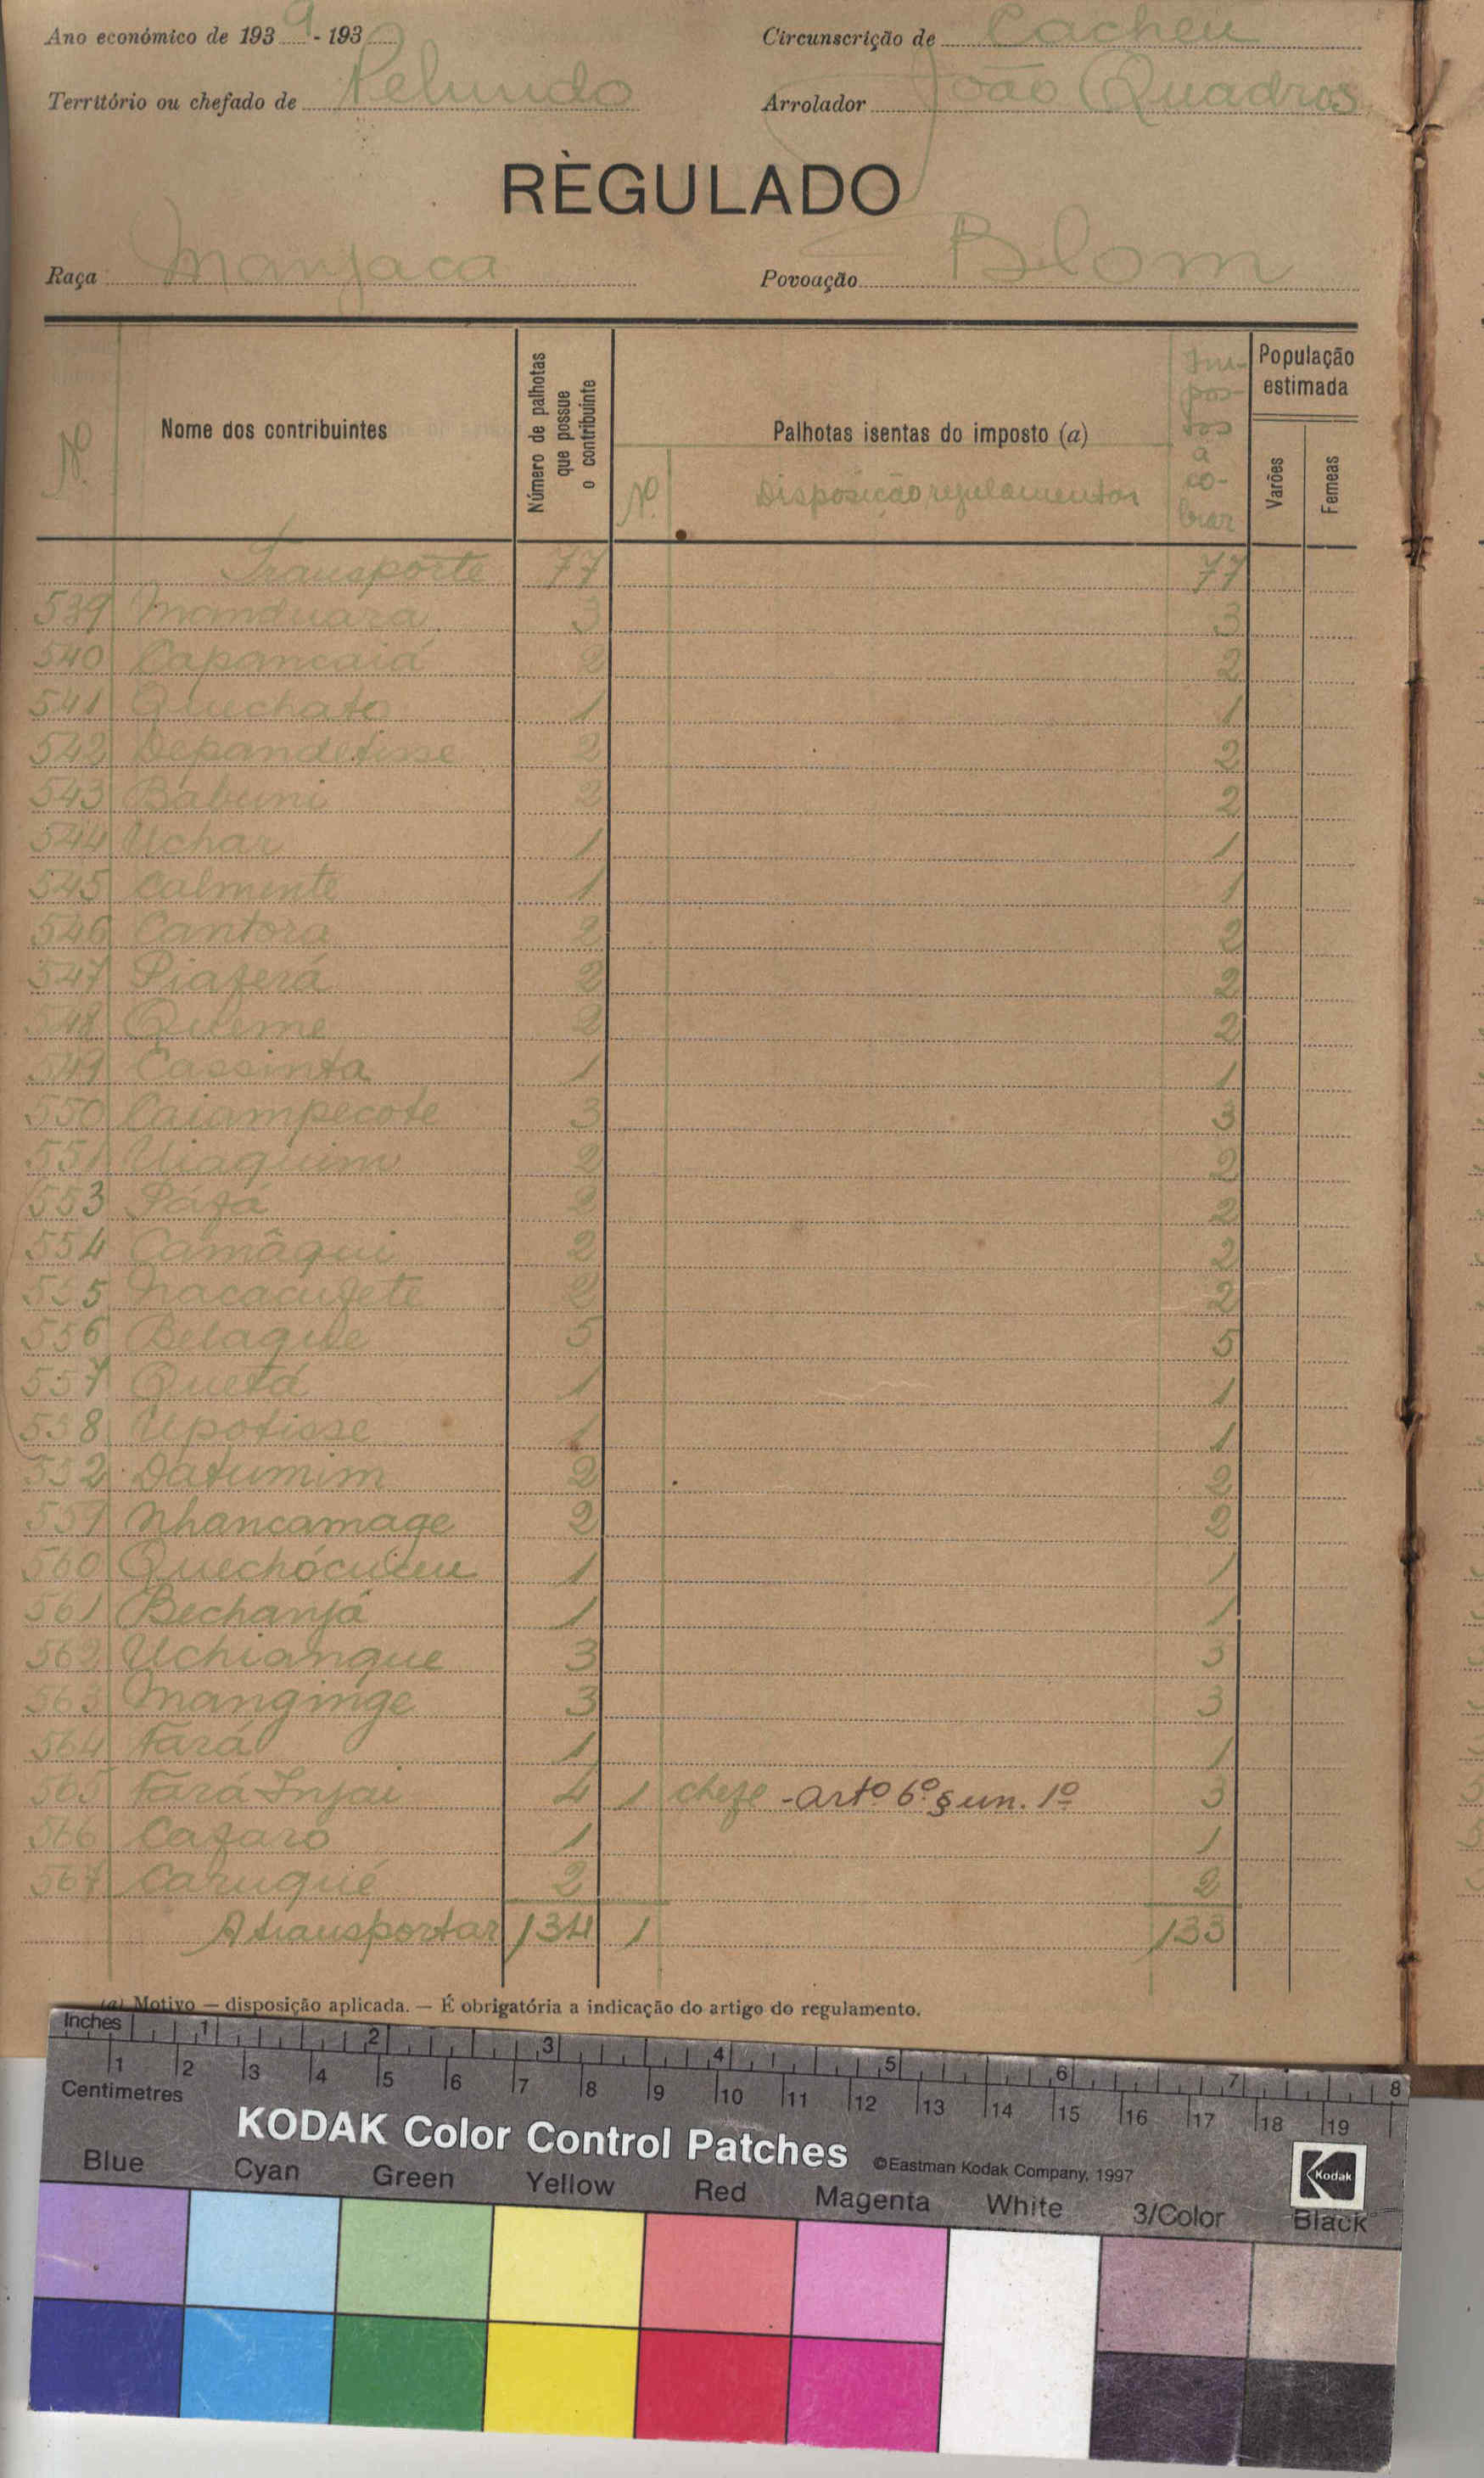 Ano económico de 1939-193
Circunscrição de Cacheu
Território ou chefado de Pelundo
Arrolador João Quadros
RÈGULADO
Raça Manjaca
Povoação Blom
Nº
Nome dos contribuintes
Número de palhotas que possue o contribuinte
Palhotas isentas do imposto (a)
Nº
Disposição regulamentar
Impostos a cobrar
População estimada
Varões
Femeas
Transporte 77 77
539 Manduara 3 3
540 Capancaiá 2 2
541 Quechato 1 1
542 Depandetisse 2 2
543 Babuni 2 2
544 Uchar 1 1
545 Calmente 1 1
546 Cantora 2 2
547 Piaferá 2 2
548 Quleme 2 2
549 Cassinta 1 1
550 Caiampecote 3 3
551 Uiaquim 2 2
553 Páfá 2 2
554 Camâqui 2 2
555 Nacacufete 2 2
556 Belaque 5 5
557 Quetá 1 1
558 Upotisse 1 1
552 Datumim 2 2
559 Nhancamage 2 2
560 1 1
561 Bechanjá 1 1
562 Uchiangue 3 3
563 Manginge 3 3
564 Fará 1 1
565 Fará Injai 4 1 chefe - artº 6º § un. 1º 3
566 Cafaro 1 1
567 Caruquié 2 2
A transportar 134 1 133
(a) Motivo — disposição aplicada. — É obrigatória a indicação do artigo do regulamento.
Inches 1 2 3 4 5 6 7 8
1 2 3 4 5 6 7 8 9 10 11 12 13 14 15 16 17 18 19
Centimetres
KODAK Color Control Patches ©Eastman Kodak Company, 1997
Kodak
Blue Cyan Green Yellow Red Magenta White 3/Color Black